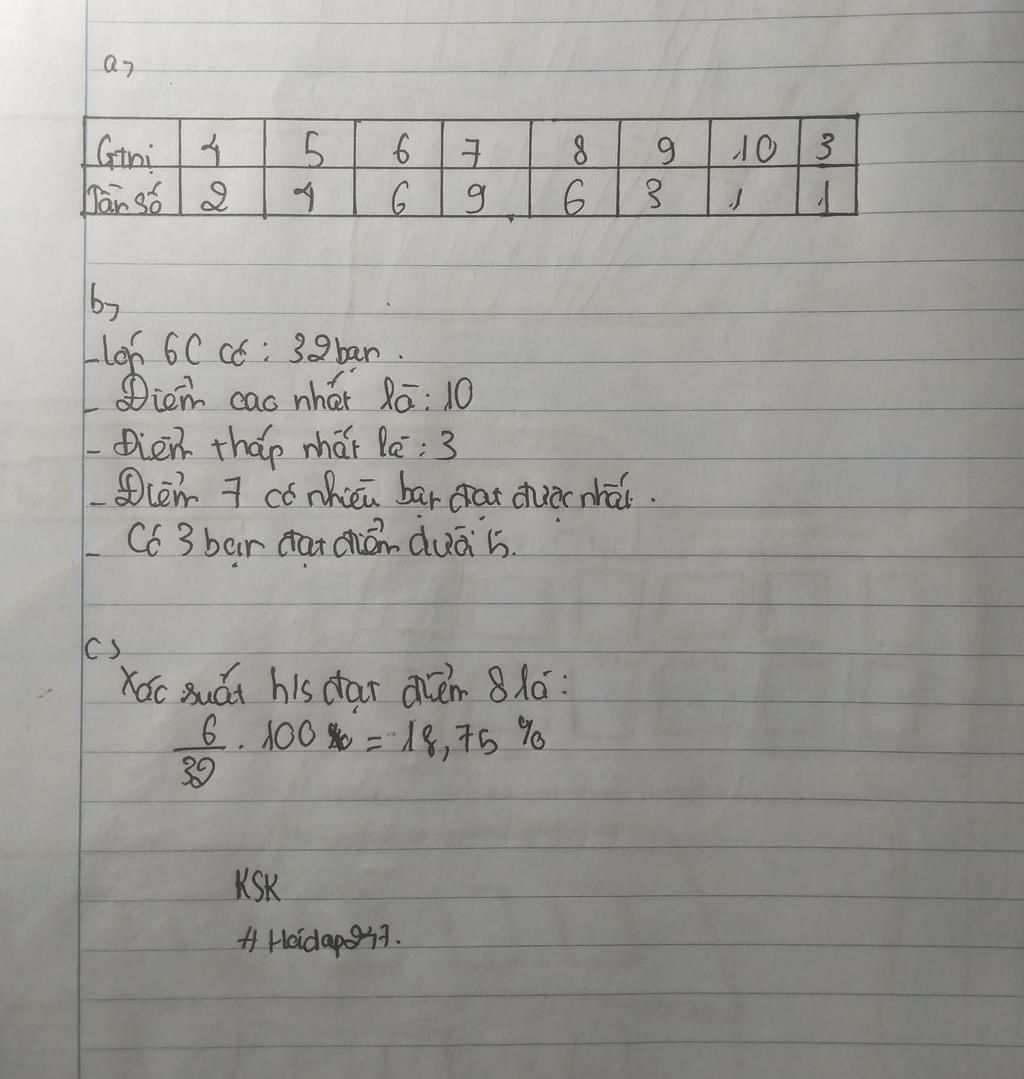 a,
G.trị 4 5 6 7 8 9 10 3
Tần số 2 4 6 9 6 3 1 1
b,
- Lớp 6C có : 32 bạn .
- Điểm cao nhất là : 10
- Điểm thấp nhất là : 3
- Điểm 7 có nhiều bạn đạt được nhất .
- Có 3 bạn đạt điểm dưới 5.
c,
Xác suất h/s đạt điểm 8 là :
6/32 . 100 % = 18,75 %
KSK
# Hoidap247.